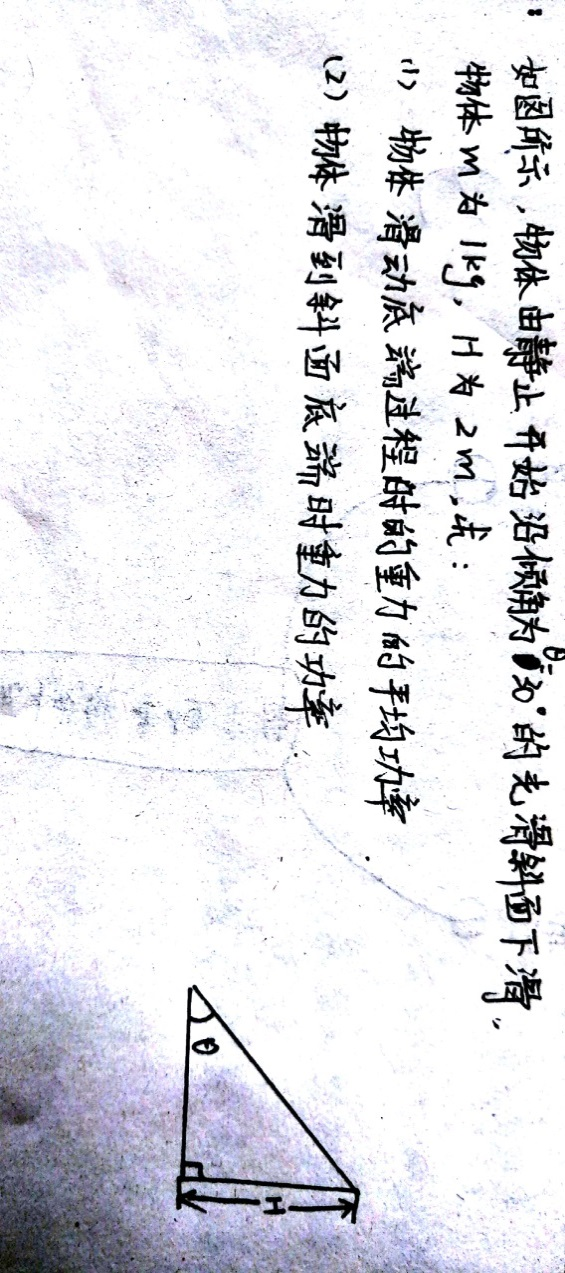 如图所示,物体由静止开始沿倾角为θ=30°的光滑斜面下滑,
物体m为1kg,H为2m,求:
(1) 物体滑动底端过程时的重力的平均功率
(2) 物体滑到斜面底端时重力的功率
θ
H